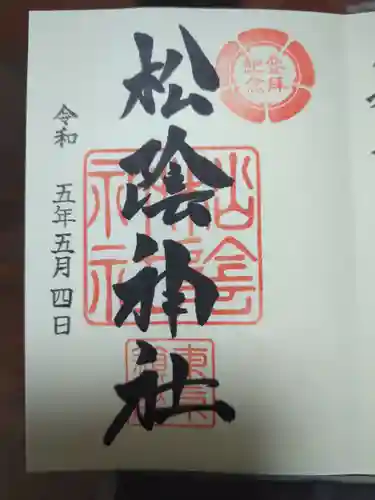 登拝
記念
松陰神社
松陰神社
令和 五年五月四日